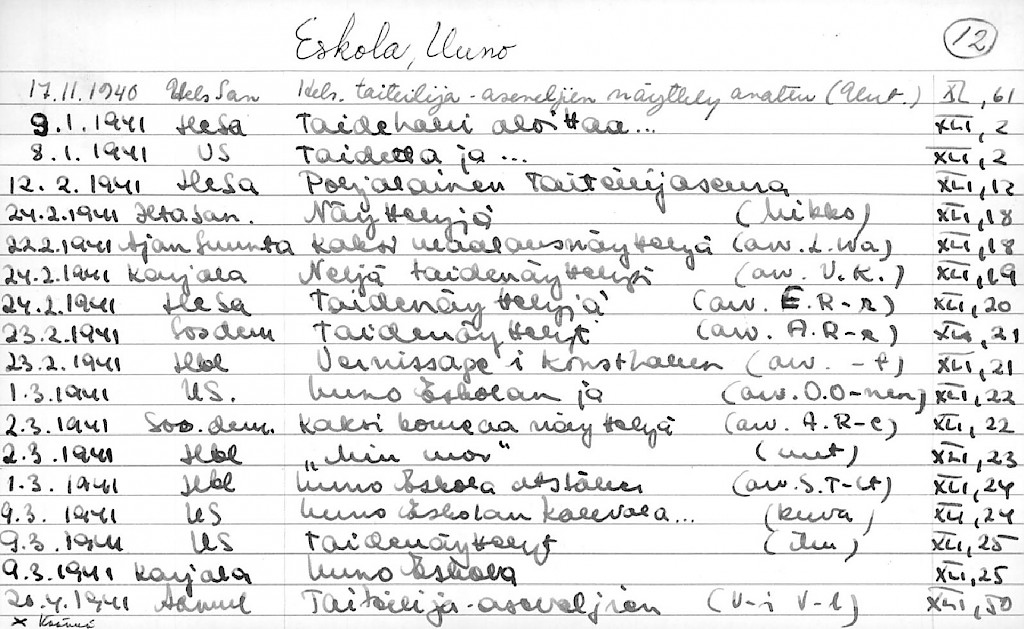 Eskola, Uuno 12
17.11.1940 Hels San Hels. taiteilija-aseveljien näyttely avattu XL, 61
9.1.1941 HeSa Taidehalli aloittaa... XLI, 2
8.1.1941 US Taidetta ja ... XLI, 2
12.2.1941 HeSa Pohjalainen Taiteilijaseura XLI, 12
24.2.1941 IltaSan. Näyttelyjä (Mikko) XLI, 18
22.2.1941 Ajan Suunta Kaksi maalausnäyttelyä (arv. L. Wa) XLI, 18
24.2.1941 Karjala Neljä taidenäyttelyä (arv. V.K.) XLI, 19
24.2.1941 HeSa Taidenäyttelyjä (arv. E.R-r) XLI, 20
23.2.1941 Sosdem Taidenäyttelyt (arv. A.R-a) XLI, 21
23.2.1941 Hbl Vernissage i Konsthallen (arv. -t) XLI, 21
1.3.1941 US. Uuno Eskolan ja (arv. O.O-nen) XLI, 22
2.3.1941 Sos.dem. Kaksi komeaa näyttelyä (arv. A.R-a) XLI, 22
2.3.1941 Hbl „Min mor" XLI, 23
1.3.1941 Hbl Uuno Eskola utställer (arv. S.T-lt) XLI, 24
9.3.1941 US Uuno Eskolan Kalevala... (kuva) XLI, 24
9.3.1941 US Taidenäyttelyt (ilm) XLI, 25
9.3.1941 Karjala Uuno Eskola XLI, 25
20.4.1941 Aamul Taiteilija-aseveljien (V-i V-l) XLI, 50
x